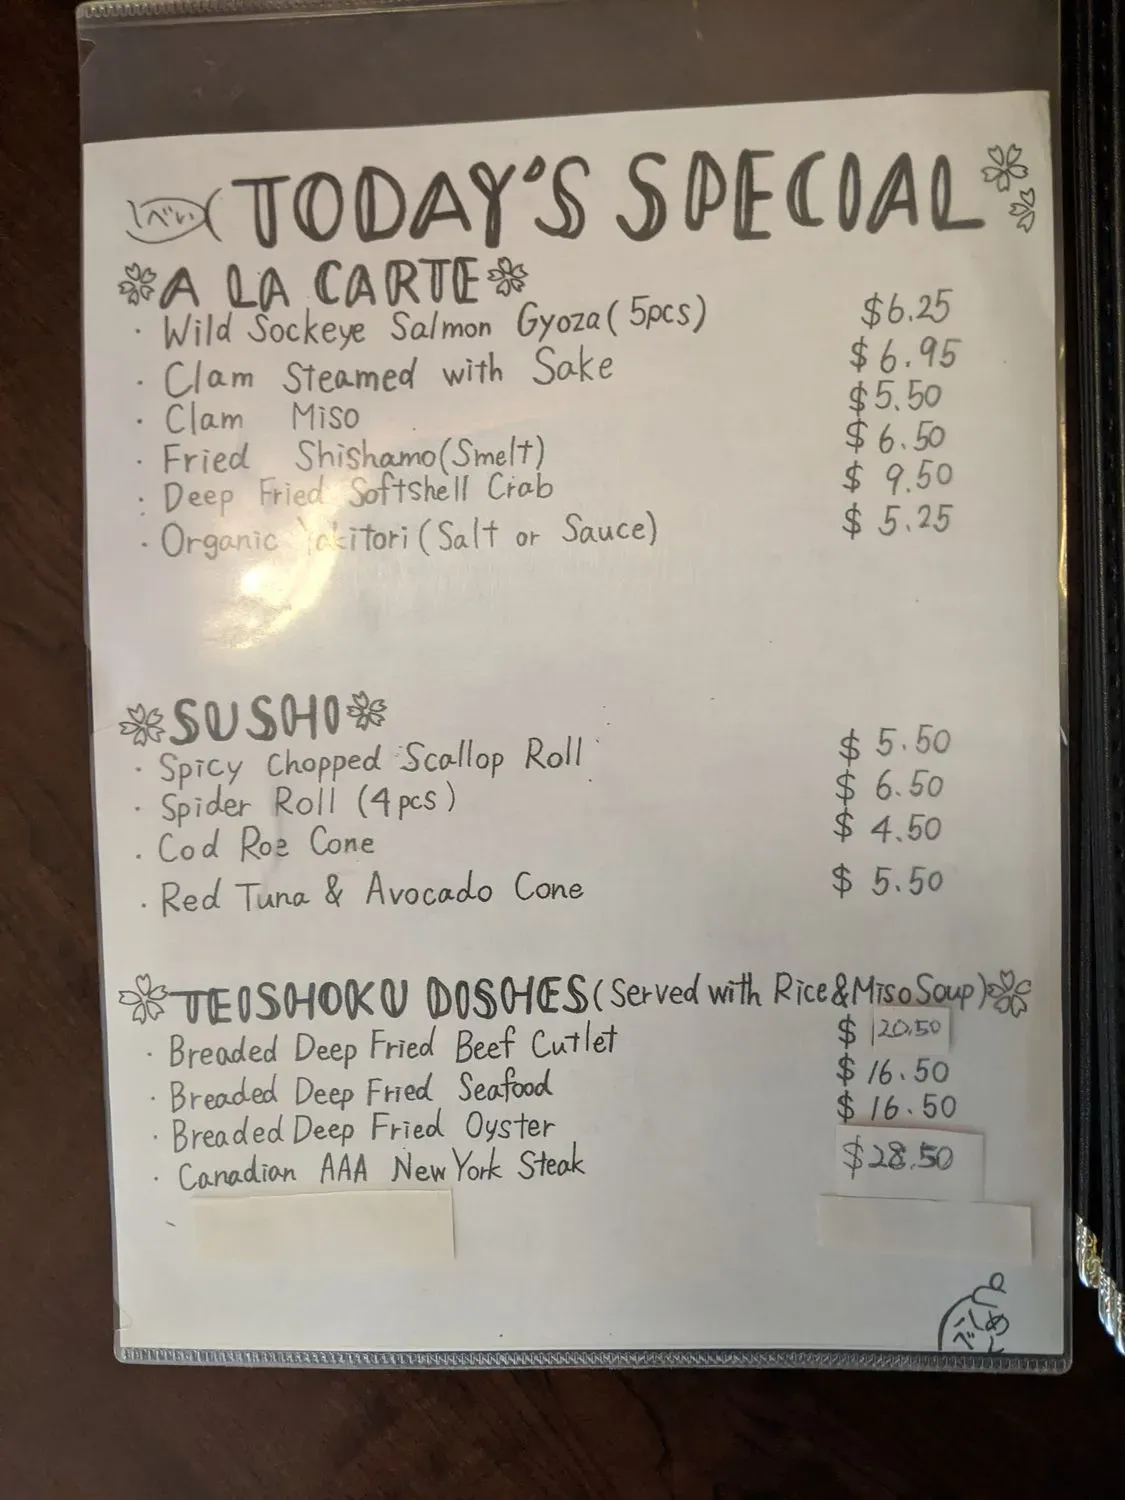 べい TODAY'S SPECIAL
A LA CARTE
· Wild Sockeye Salmon Gyoza (5pcs) $6.25
· Clam Steamed with Sake $6.95
· Clam Miso $5.50
· Fried Shishamo (Smelt) $6.50
· Deep Fried Softshell Crab $9.50
· Organic Yakitori (Salt or Sauce) $5.25
SUSHI
· Spicy Chopped Scallop Roll $5.50
· Spider Roll (4pcs) $6.50
· Cod Roe Cone $4.50
· Red Tuna & Avocado Cone $5.50
TEISHOKU DISHES (Served with Rice & Miso Soup)
· Breaded Deep Fried Beef Cutlet $20.50
· Breaded Deep Fried Seafood $16.50
· Breaded Deep Fried Oyster $16.50
· Canadian AAA New York Steak $28.50